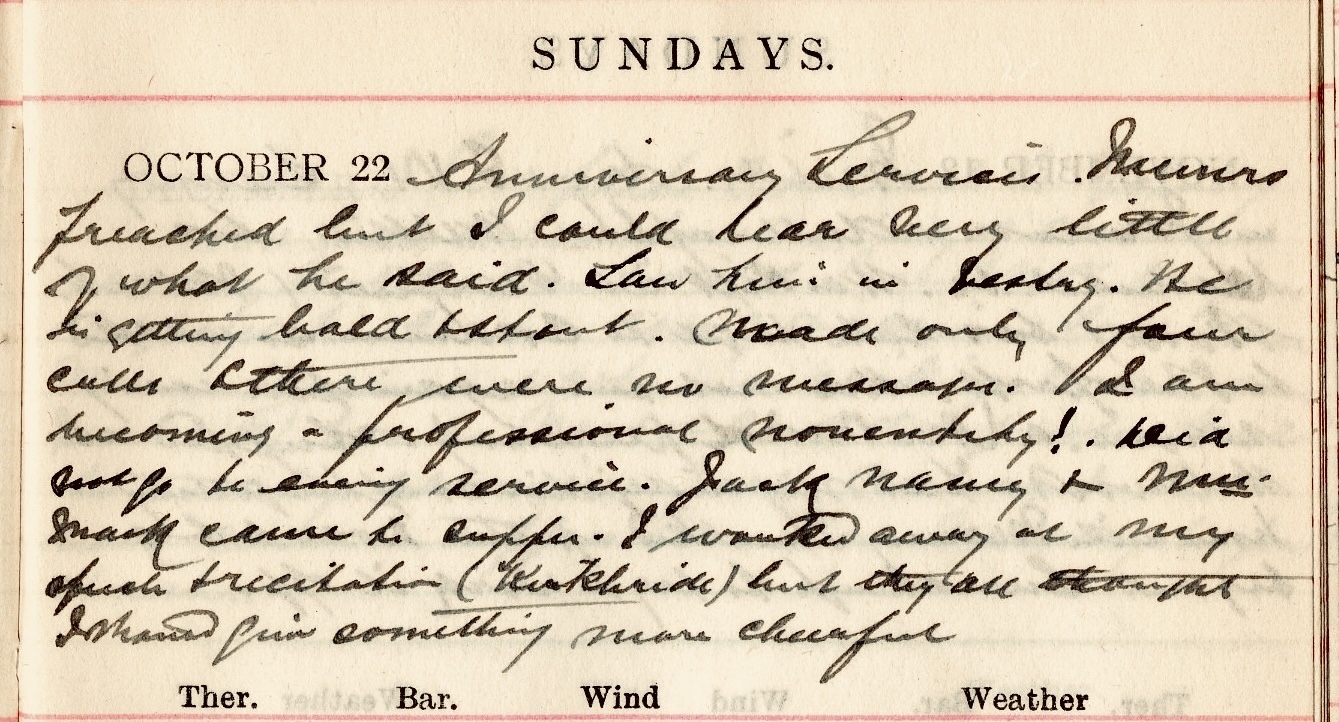 SUNDAYS.
OCTOBER 22 Anniversary Services. Munro
preached but I could hear very little
of what he said. Saw him in Vestry. He
is getting bald & stout. Made only four
calls & there were no messages. I am
becoming a professional nonentity!. Did
not go to evening service. Jack Nancy & Mrs.
Mack came to supper. I worked away at my
speech & recitation (Kirkbride) but they all thought
I should give something more cheerful
Ther. Bar. Wind Weather